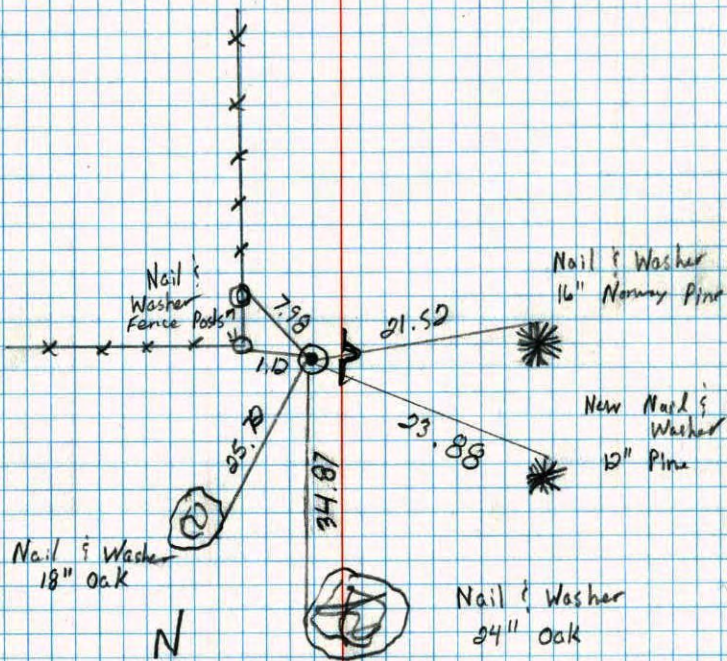 Nail &
Washer
Fence Posts
7.98
21.52
Nail & Washer
16" Norway Pine
1.12
23.88
New Nail &
Washer
12" Pine
34.87
Nail & Washer
18" Oak
Nail & Washer
24" Oak
N